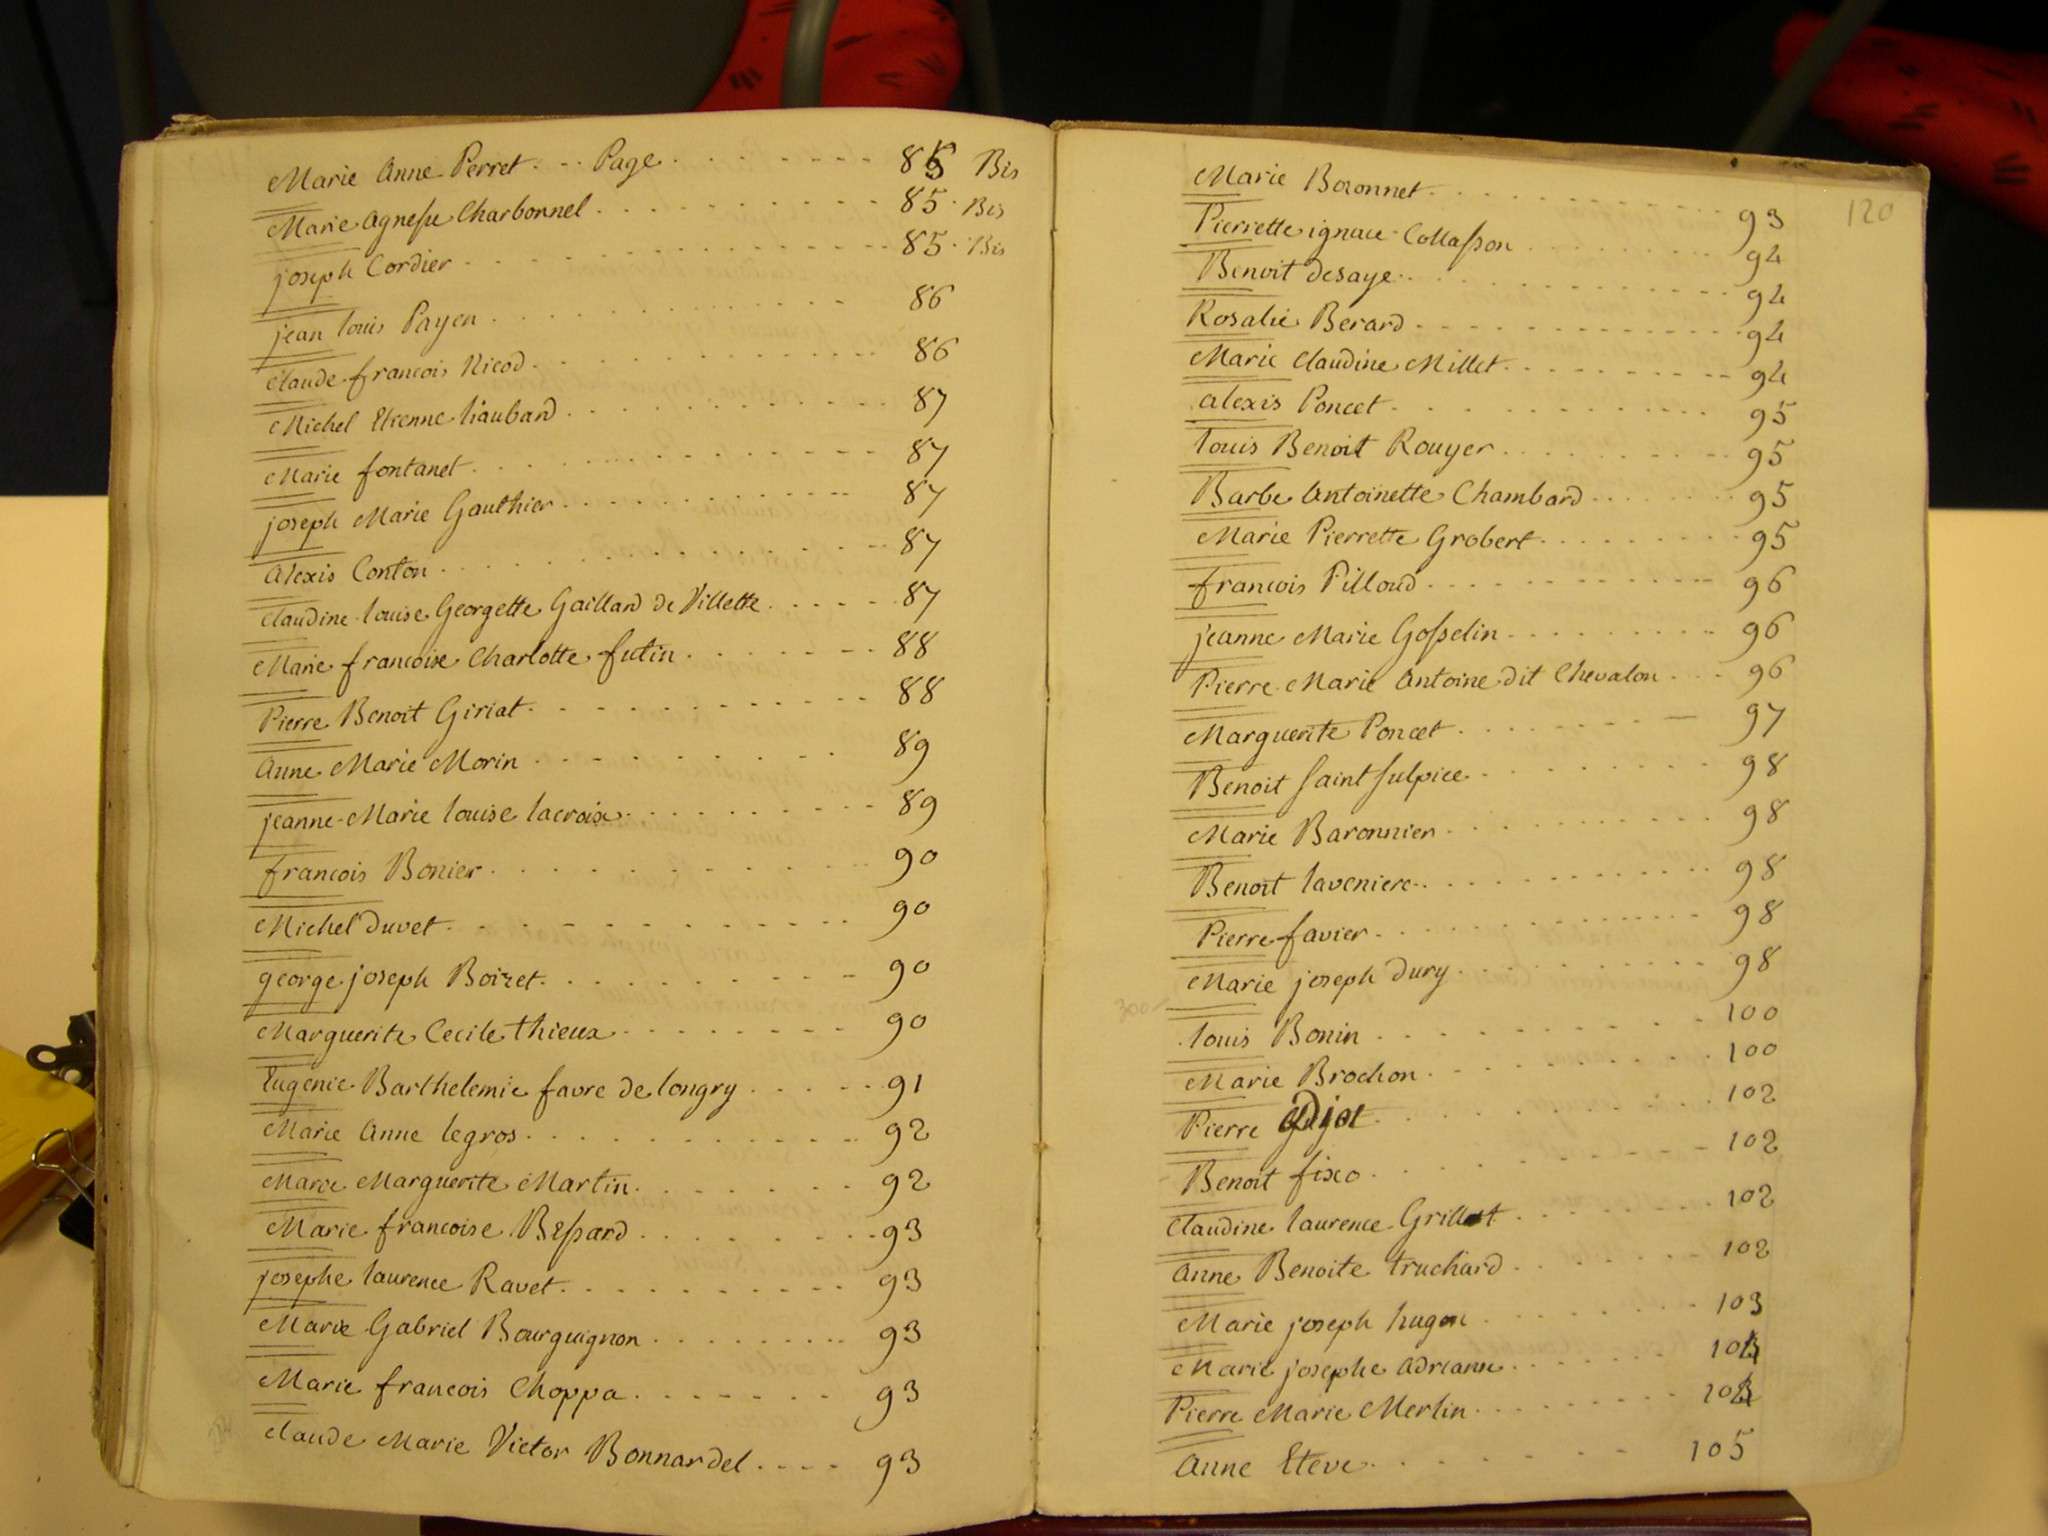 Marie Anne Perret - - Page - - - - 85 Bis
Marie Agnesse Charbonnel - - - - 85 Bis
joseph Cordier - - - - 85 Bis
jean louis Payen - - - - 86
Claude francois Nicod - - - - 86
Michel Etienne liaubard - - - - 87
Marie fontanet - - - - 87
joseph Marie Gauthier - - - - 87
Alexis Conton - - - - 87
Claudine louise Georgette Gaillard de Villette - - - - 87
Marie francoise Charlotte futin - - - - 88
Pierre Benoit Giriat - - - - 88
Anne Marie Morin - - - - 89
jeanne Marie louise lacroix - - - - 89
francois Bonier - - - - 90
Michel Duvet - - - - 90
george joseph Boizet - - - - 90
Marguerite Cecile thieux - - - - 90
Eugenie Barthelemie favre de longry - - - - 91
Marie Anne legros - - - - 92
Marie Marguerite Martin - - - - 92
Marie francoise Bessard - - - - 93
josephe laurence Ravet - - - - 93
Marie Gabriel Bourguignon - - - - 93
Marie francois Choppa - - - - 93
Claude Marie Victor Bonnardel - - - - 93
120
Marie Boronnet - - - - 93
Pierrette ignace Collasson - - - - 94
Benoit desaye - - - - 94
Rosalie Berard - - - - 94
Marie Claudine Millet - - - - 94
Alexis Poncet - - - - 95
louis Benoit Rouyer - - - - 95
Barbe Antoinette Chambard - - - - 95
Marie Pierrette Grobert - - - - 95
francois Pilloud - - - - 96
jeanne Marie Gosselin - - - - 96
Pierre Marie Antoine dit Chevalon - - - 96
Marguerite Poncet - - - - 97
Benoit Saint Sulpice - - - - 98
Marie Baronnier - - - - 98
Benoit laveniere - - - - 98
Pierre favier - - - - 98
Marie joseph Dury - - - - 98
300
louis Bonin - - - - 100
Marie Brochon - - - - 100
Pierre - - - - 102
Benoit fixo - - - - 102
Claudine laurence Grillet - - - - 102
Anne Benoite truchard - - - - 102
Marie joseph hugon - - - - 103
Marie josephe Adrianne - - - - 104
Pierre Marie Merlin - - - - 104
Anne Eteve - - - - 105